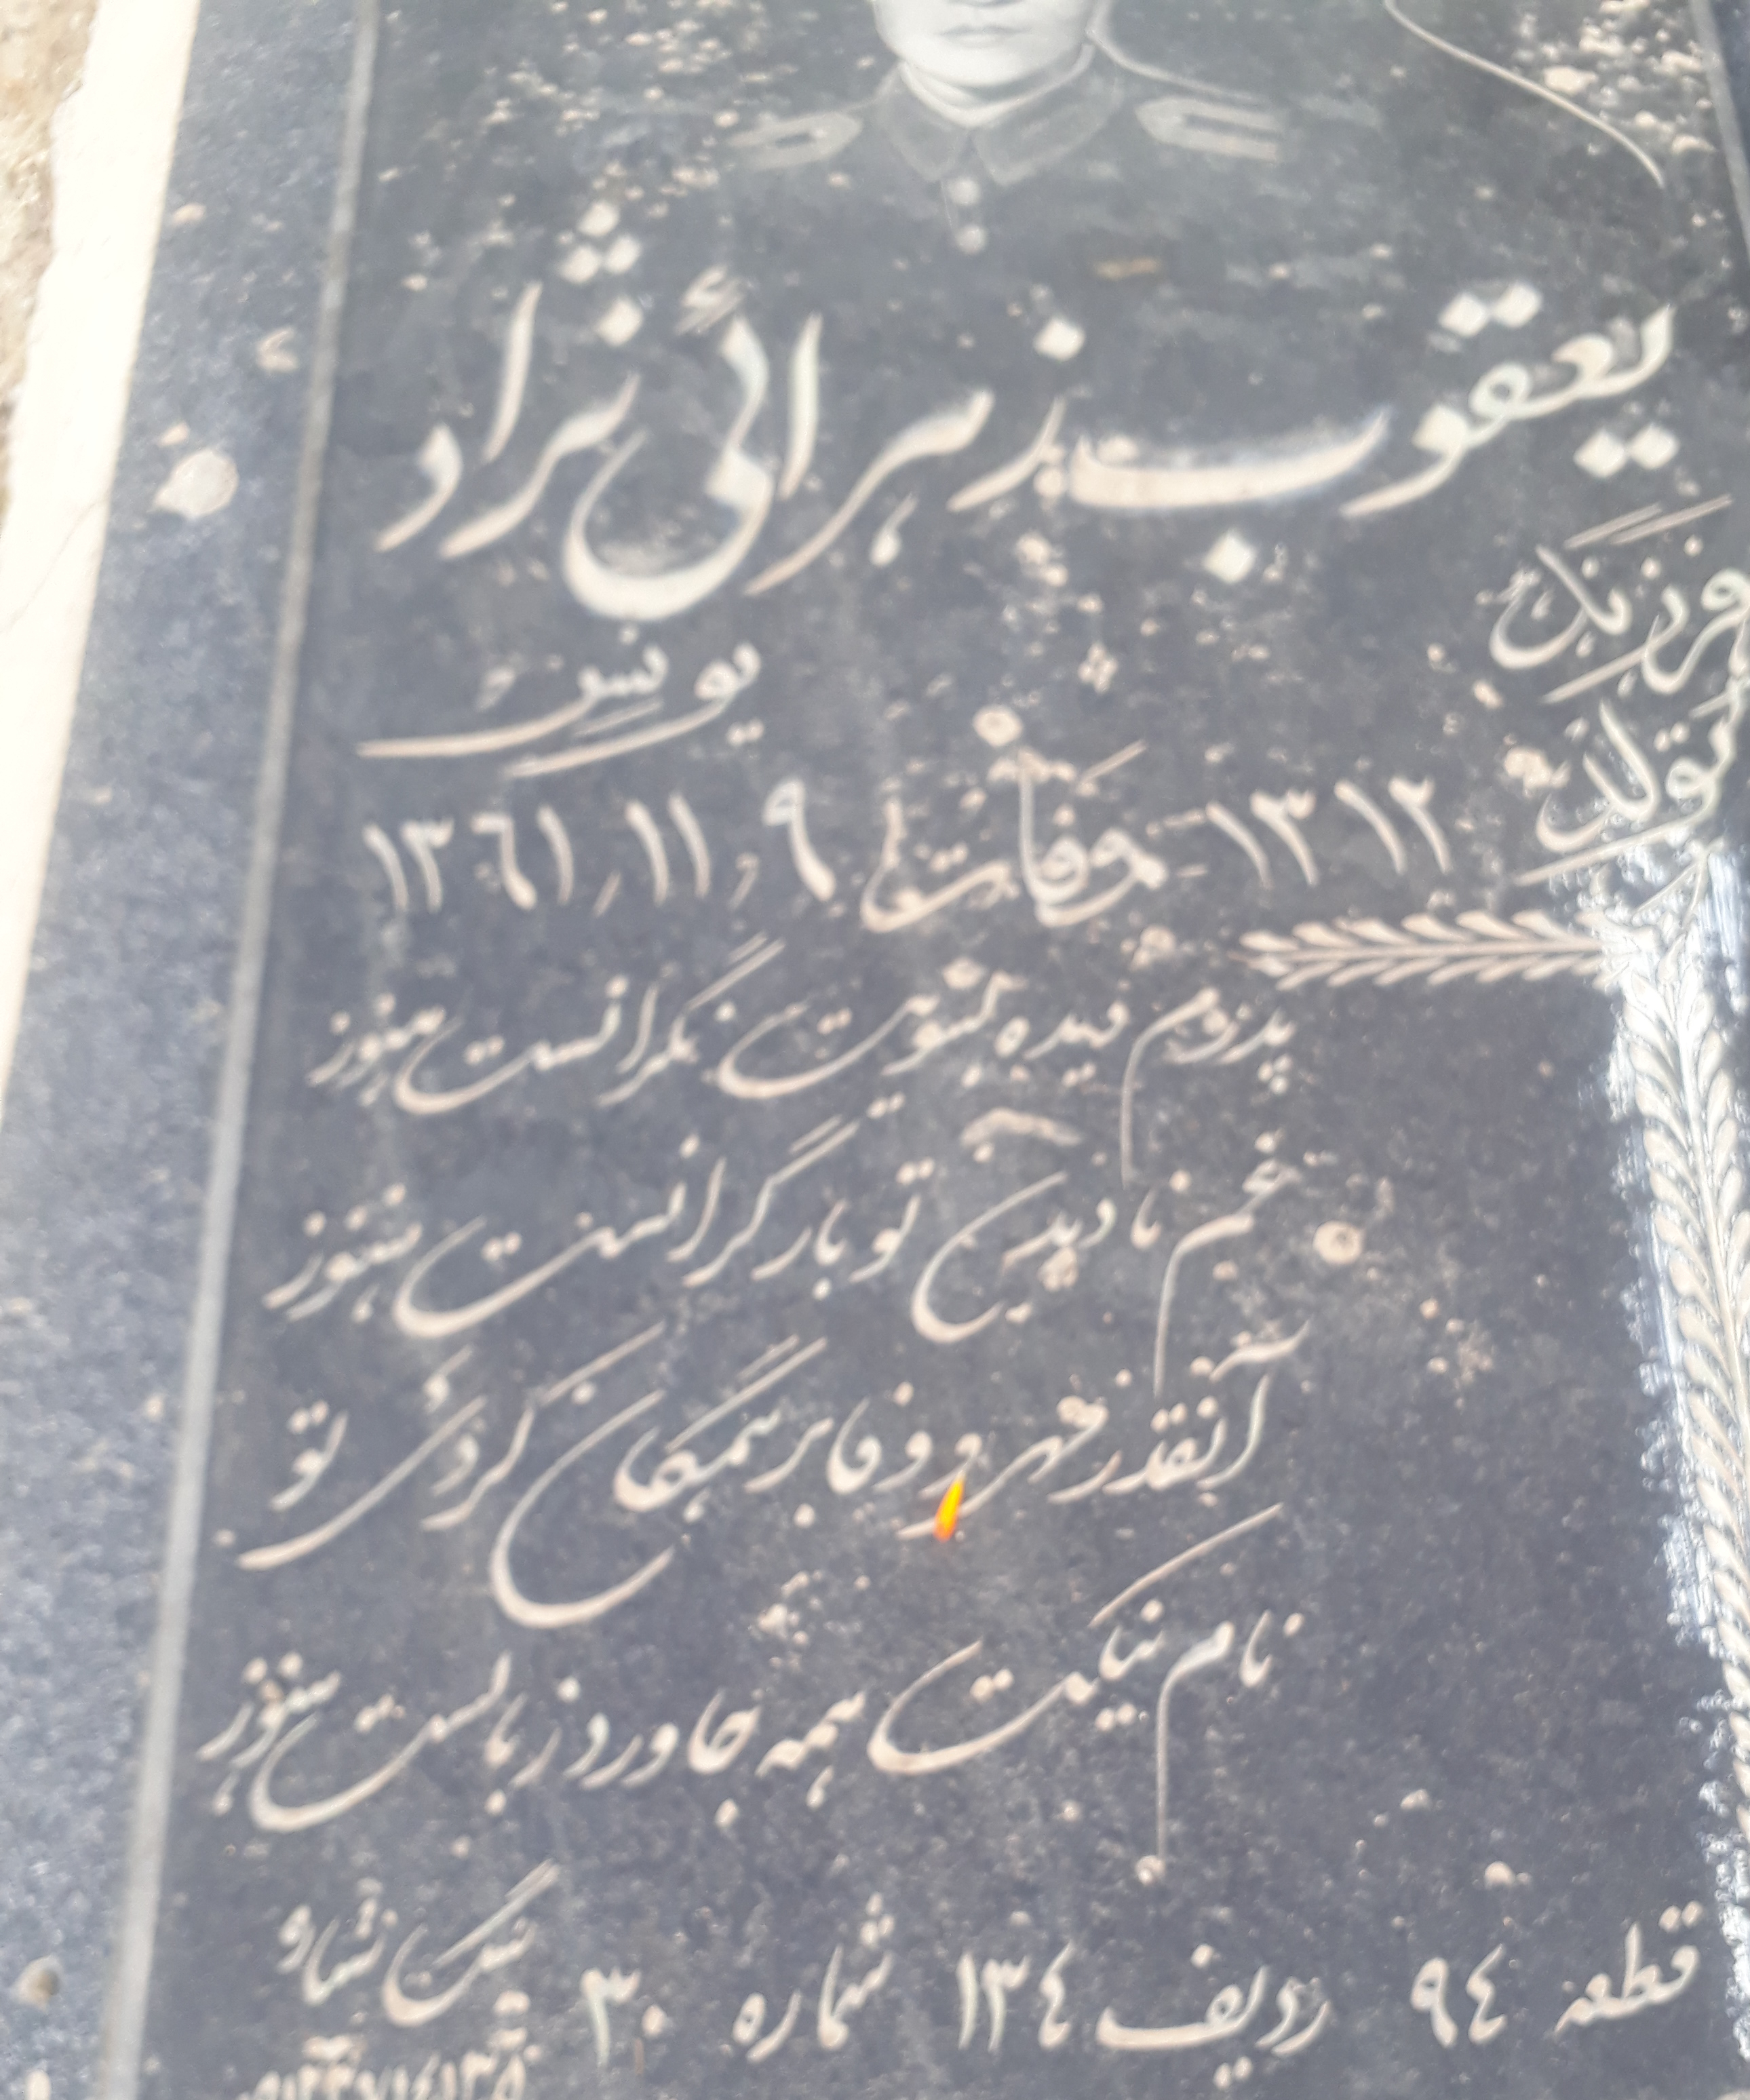 یعقوب زهرائی نژاد
فرزند یونس
متولد ۱۳۱۲ - وفات ۹ ر ۱۱ ر ۱۳۶۱
پدرم دیده بسویت نگرانست هنوز
غم نادیدن تو بار گرانست هنوز
آنقدر مهر و وفا بر همگان کردی تو
نام نیکت همه جا ورد زبانست هنوز
قطعه ۹۴ ردیف ۱۳۴ شماره ۳۰